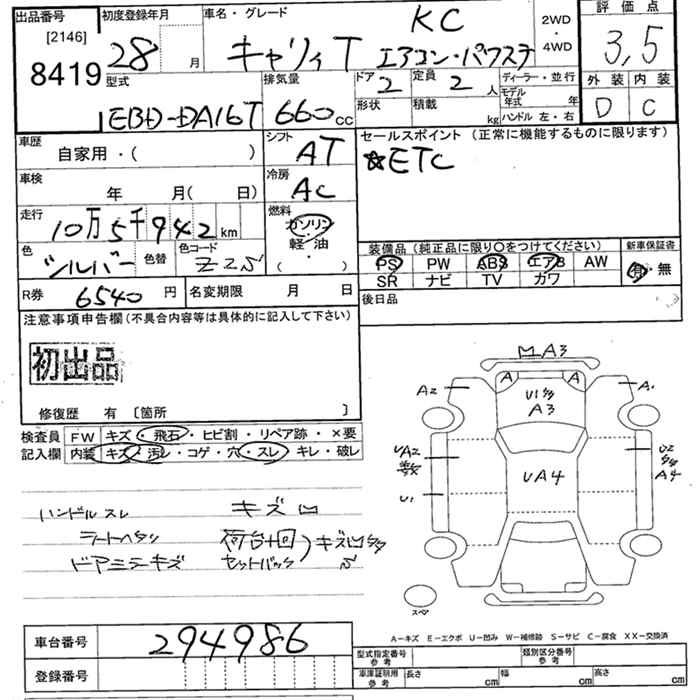 出品番号 [2146] 8419
初度登録年月 28 月
車名・グレード KC
キャリィT エアコン・パワステ
2WD ・ 4WD
評価点 3,5
外装 D 内装 C
型式 EBD-DA16T
排気量 660 cc
ドア 2 定員 2 人
形状 積載 kg
ディーラー・並行
モデル年式 年
ハンドル 左・右
車歴 自家用・( )
シフト AT
セールスポイント (正常に機能するものに限ります)
☆ETC
車検 年 月( 日)
冷房 AC
走行 10万5千942 km
燃料 ガソリン 軽油 ( ・ )
色 シルバー 色替 色コード Z2S
装備品 (純正品に限り○をつけてください) 新車保証書
PS PW ABS エアB AW 有・無
SR ナビ TV カワ
R券 6540 円 名変期限 月 日
後日品
注意事項申告欄 (不具合内容等は具体的に記入して下さい)
初出品
修復歴 有 〔箇所 〕
検査員 FW キズ・飛石・ヒビ割・リペア跡・×要
記入欄 内装 キズ・汚レ・コゲ・穴・スレ・キレ・破レ
ハンドルスレ キズ凹
シートヘタリ 荷台凹 キズ凹
ドアミラーキズ セットバック
凹A3
A A
A2 U1 A3
UA2 U2 A4
UA4
U1
スペア
A-キズ E-エクボ U-凹み W-補修跡 S-サビ C-腐食 XX-交換済
車台番号 294986
登録番号
型式指定番号 参考 類別区分番号 参考
車庫証明用 参考 長さ cm 幅 cm 高さ cm